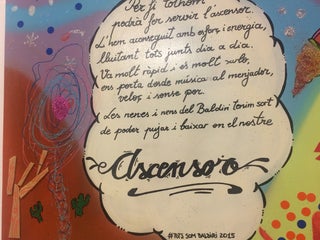 Per fi tothom
podrà fer servir l'ascensor.
L'hem aconseguit amb esforç i energia,
lluitant tots junts dia a dia.
Va molt ràpid i és molt xulo,
ens porta desde música al menjador,
veloç i sense por.
Les nenes i nens del Baldiri tenim sort
de poder pujar i baixar en el nostre
Ascensor
#TOTS SOM BALDIRI 2015